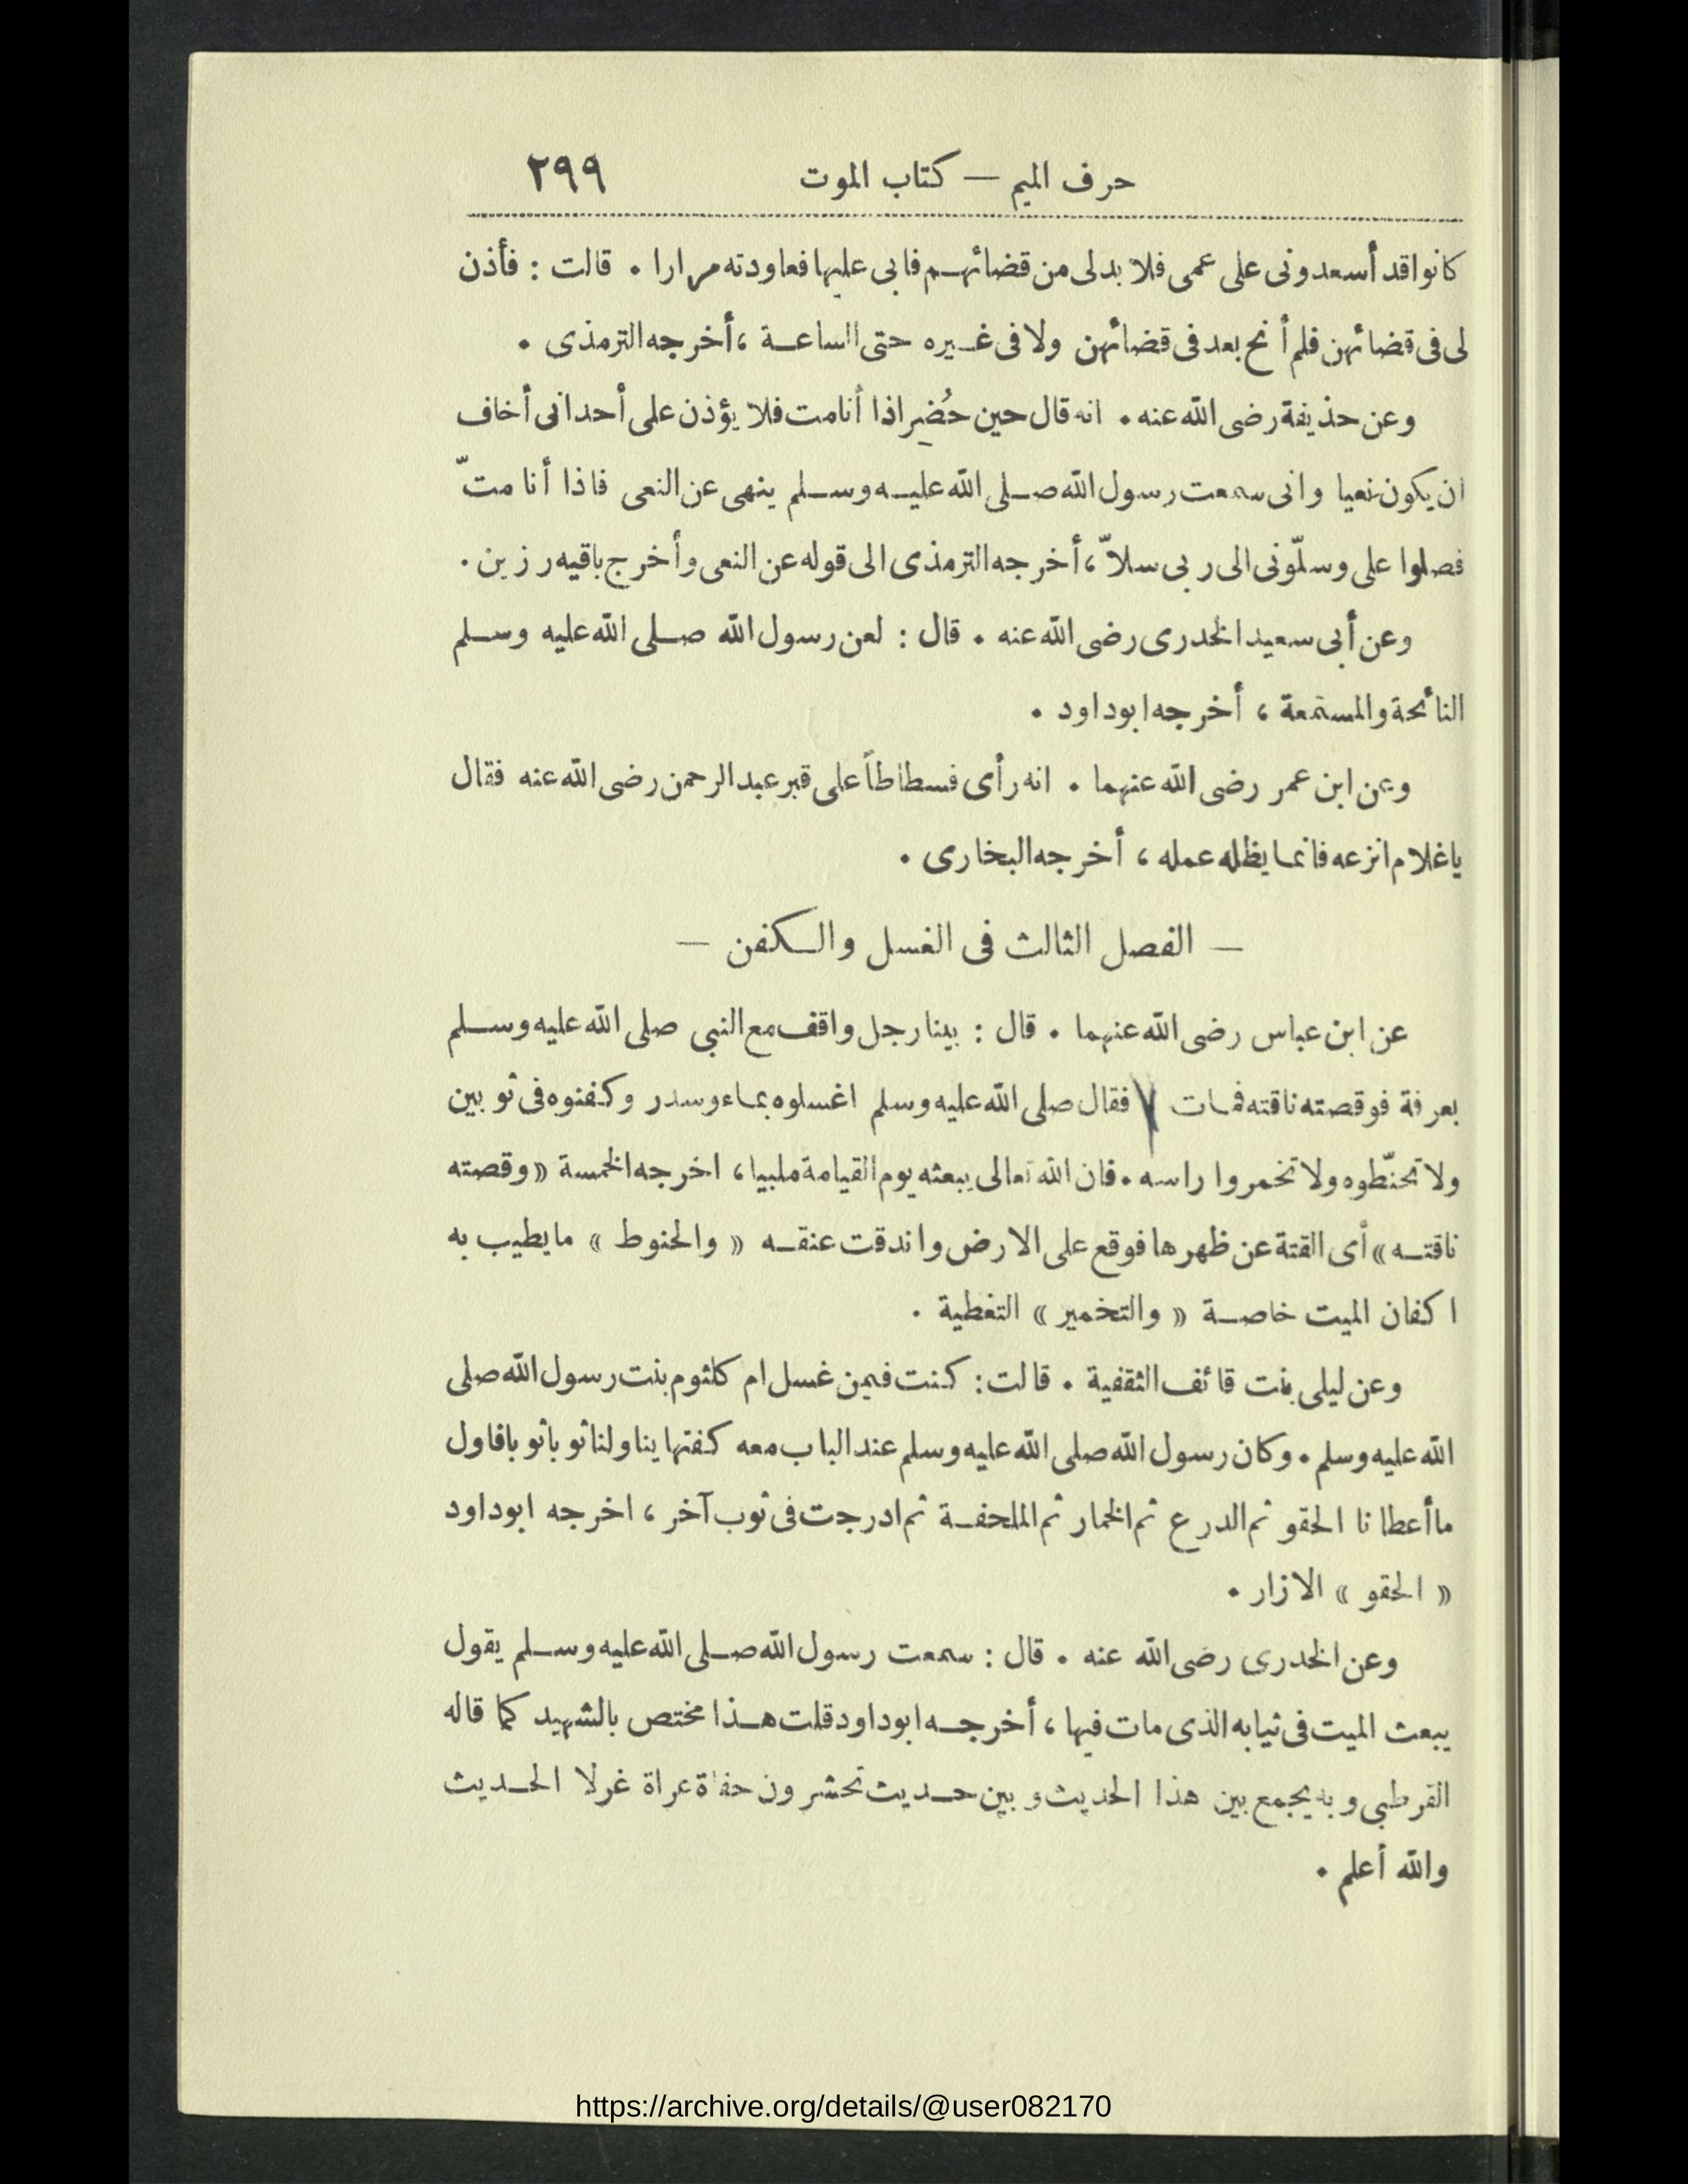 حرف الميم — كتاب الموت ٢٩٩
كانوا قد أسعدونى على عمى فلا بد لى من قضائهم فابى عليها فعاودته مرارا . قالت : فأذن
لى فى قضائهن فلم أنح بعد فى قضائهن ولا فى غيره حتى الساعة ، أخرجه الترمذى .
وعن حذيفة رضى الله عنه . انه قال حين حُضِر اذا أنا مت فلا يؤذن على أحد انى أخاف
ان يكون نعيا وانى سمعت رسول الله صلى الله عليه وسلم ينهى عن النعى فاذا أنا متّ
فصلوا على وسلّونى الى ربى سلاّ ، أخرجه الترمذى الى قوله عن النعى وأخرج باقيه رزين .
وعن أبى سعيد الخدرى رضى الله عنه . قال : لعن رسول الله صلى الله عليه وسلم
النائحة والمستمعة ، أخرجه ابو داود .
وعن ابن عمر رضى الله عنهما . انه رأى فسطاطاً على قبر عبد الرحمن رضى الله عنه فقال
يا غلام انزعه فانما يظله عمله ، أخرجه البخارى .
— الفصل الثالث فى الغسل والكفن —
عن ابن عباس رضى الله عنهما . قال : بينا رجل واقف مع النبى صلى الله عليه وسلم
بعرفة فوقصته ناقته فمات فقال صلى الله عليه وسلم اغسلوه بماء وسدر وكفنوه فى ثوبين
ولا تحنّطوه ولا تخمروا راسه . فان الله تعالى يبعثه يوم القيامة ملبيا ، اخرجه الخمسة « وقصته
ناقته » أى القتة عن ظهرها فوقع على الارض واندقت عنقه « والحنوط » ما يطيب به
اكفان الميت خاصة « والتخمير » التغطية .
وعن ليلى بنت قائف الثقفية . قالت : كنت فيمن غسل ام كلثوم بنت رسول الله صلى
الله عليه وسلم . وكان رسول الله صلى الله عليه وسلم عند الباب معه كفنها يناولنا ثوبا ثوبا فاول
ما أعطانا الحقو ثم الدرع ثم الخمار ثم الملحفة ثم ادرجت فى ثوب آخر ، اخرجه ابو داود
« الحقو » الازار .
وعن الخدرى رضى الله عنه . قال : سمعت رسول الله صلى الله عليه وسلم يقول
يبعث الميت فى ثيابه الذى مات فيها ، أخرجه ابو داود قلت هذا مختص بالشهيد كما قاله
القرطبى وبه يجمع بين هذا الحديث وبين حديث تحشرون حفاة عراة غرلا الحديث
والله أعلم .
https://archive.org/details/@user082170